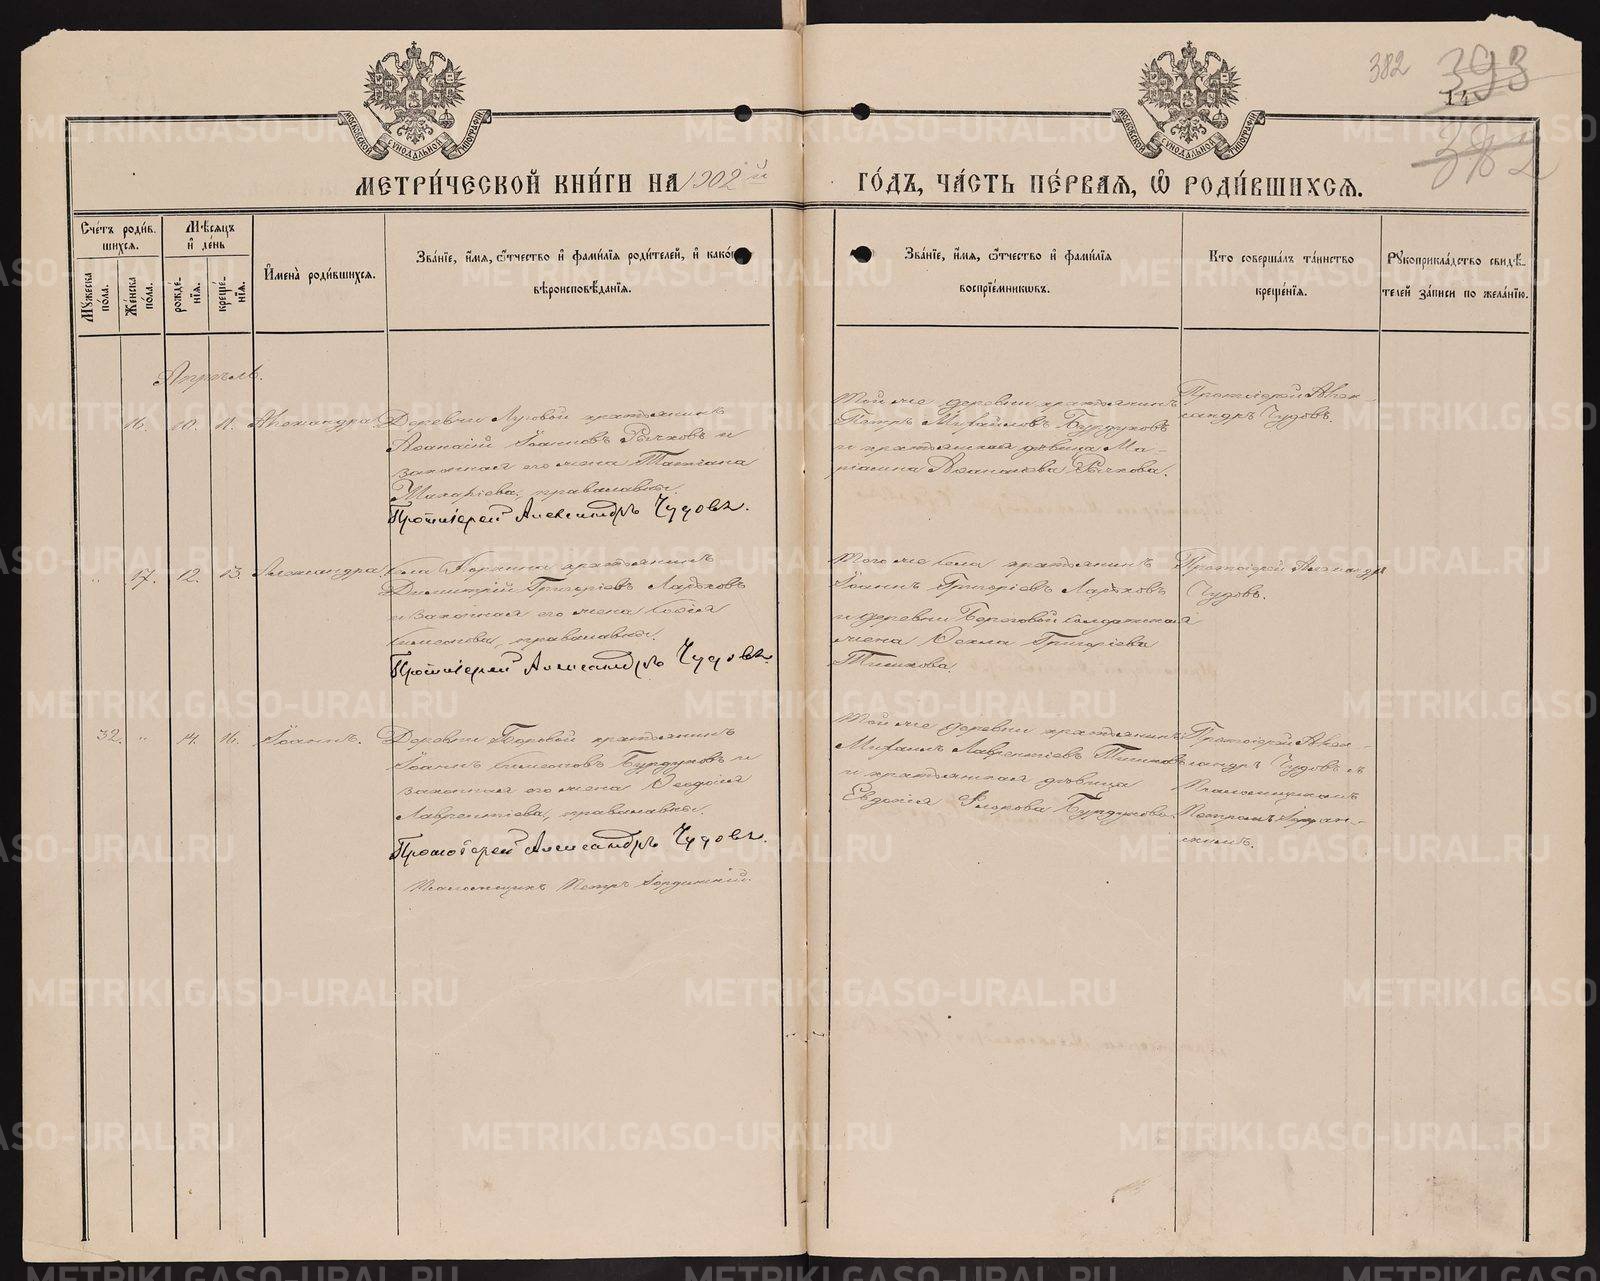 382
393
14
382
МОСКОВСКОЙ СѴНОДАЛЬНОЙ ТИПОГРАФІИ
МОСКОВСКОЙ СѴНОДАЛЬНОЙ ТИПОГРАФІИ
МЕТРИ́ЧЕСКОЙ КНИ́ГИ НА 1902 й ГО́ДЪ, ЧА́СТЬ ПЕ́РВАЯ, Ѡ҆ РОДИ́ВШИХСѦ.
Сче́тъ роди́в-
шихсѧ.
Мꙋ́жеска
по́ла.
Же́нска
по́ла.
Мѣ́сѧцъ
и҆ де́нь
рожде́-
нїѧ.
креще́-
нїѧ.
И҆мена̀ роди́вшихсѧ.
Зва́нїе, и҆́мѧ, ѻ҆́тчество и҆ фами́лїѧ роди́телей, и҆ како́гѡ
вѣроисповѣ́данїѧ.
Зва́нїе, и҆́мѧ, ѻ҆́тчество и҆ фами́лїѧ
воспрїе́мникѡвъ.
Кто̀ соверша́лъ та́инство
креще́нїѧ.
Рꙋкоприкла́дство свидѣ́-
телей за́писи по жела́нїю.
Апрѣль.
16. 10. 11. Александра.
Деревни Луговой крестьянинъ
Аѳанасій Іоанновъ Рычковъ и
законная его жена Татіана
Макаріева, православные.
Протоіерей Александръ Чудовъ.
Той же деревни крестьянинъ
Петръ Михайловъ Бурдуковъ
и крестьянская дѣвица Ма-
ріанна Аѳанасіева Рычкова.
Протоіерей Алек-
сандръ Чудовъ.
" 17. 12. 13. Александра.
Села крестьянинъ
Димитрій Григоріевъ Ладыковъ
и законная его жена Софія
Симеонова, православные.
Протоіерей Александръ Чудовъ.
Того же села крестьянинъ
Іоаннъ Григоріевъ Ладыковъ
и деревни Береговой солдатская
жена Ѳекла Григоріева
Тишкова.
Протоіерей Александръ
Чудовъ.
32. " 14. 16. Іоаннъ.
Деревни Боровой крестьянинъ
Іоаннъ Симеоновъ Бурдуковъ и
законная его жена Ѳеодосія
Лаврентіева, православные.
Протоіерей Александръ Чудовъ.
Псаломщикъ Петръ
Той же деревни крестьянинъ
Михаилъ Лаврентіевъ Тишковъ
и крестьянская дѣвица
Евдокія Флорова Бурдукова.
Протоіерей Алек-
сандръ Чудовъ съ
псаломщикомъ
Петромъ
METRIKI.GASO-URAL.RU